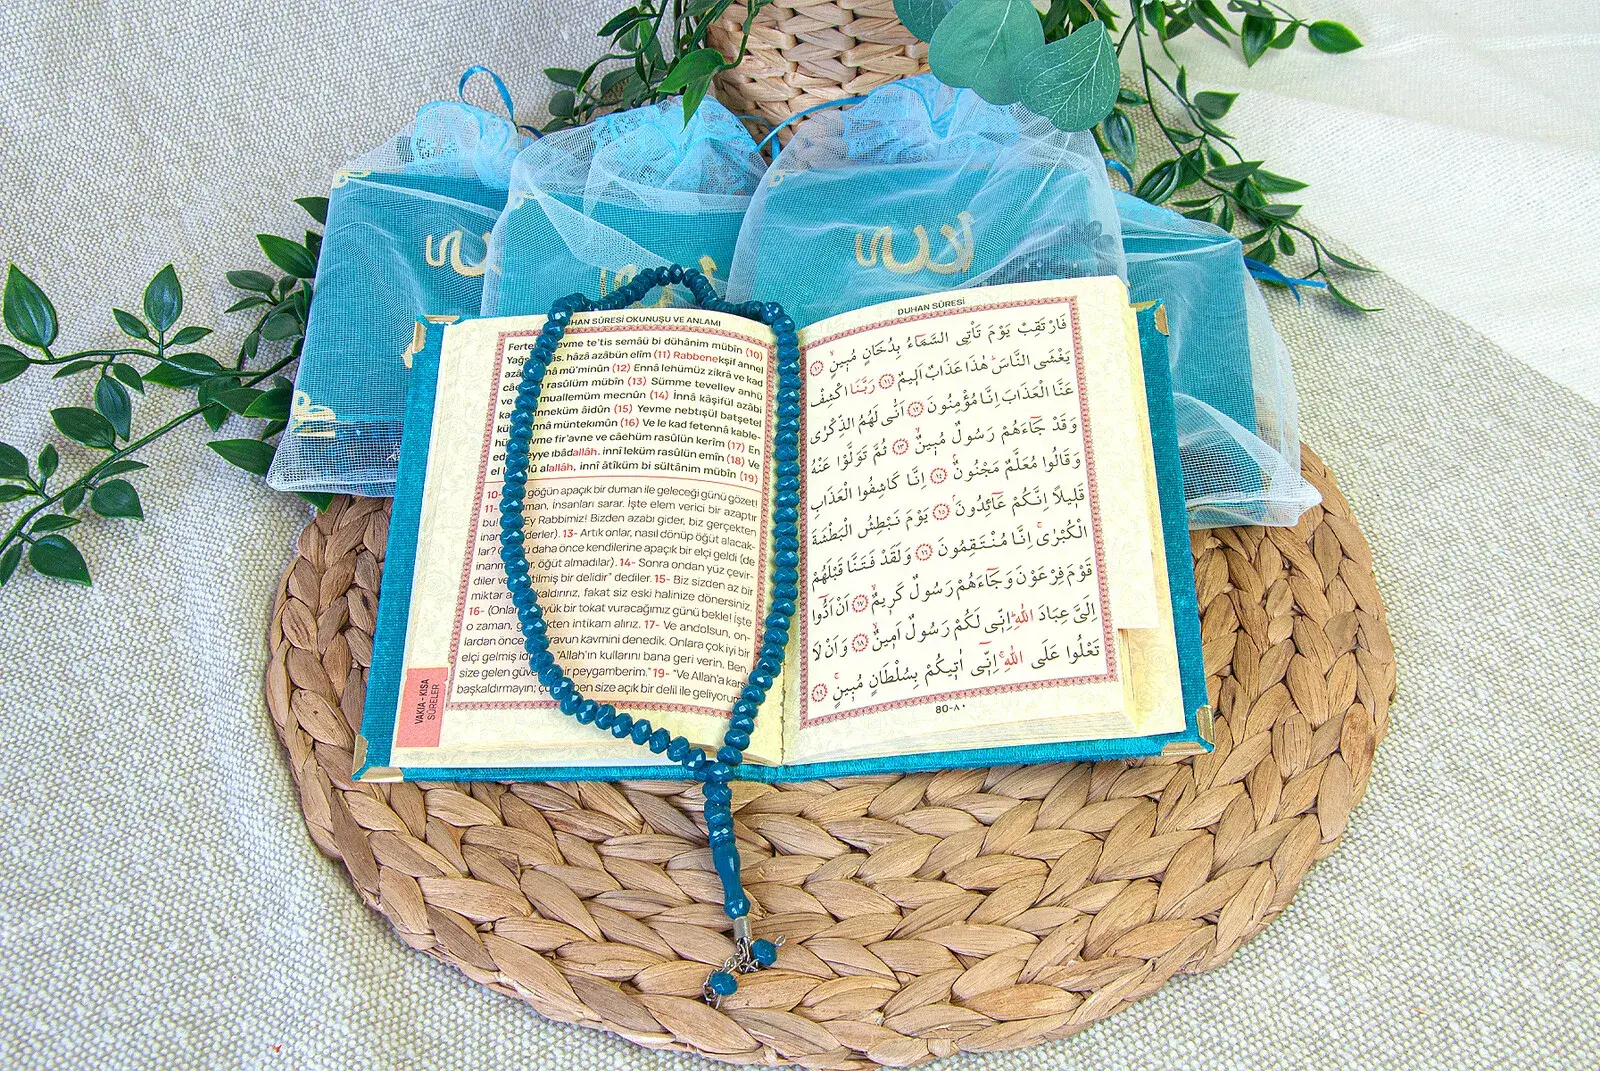 الله
DUHAN SÛRESİ OKUNUŞU VE ANLAMI
yevme te'tis semâü bi dühânim mübîn (10)
hâzâ azâbün elîm (11) Rabbenekşif annel
mü'minûn (12) Ennâ lehümüz zikrâ ve kad
rasûlüm mübîn (13) Sümme tevellev anhü
muallemüm mecnûn (14) İnnâ kâşifül azâbi
inneküm âidûn (15) Yevme nebtışül batşetel
innâ müntekımûn (16) Ve le kad fetennâ kable-
fir'avne ve câehüm rasûlün kerîm (17) En
ıbâdallâh. innî leküm rasûlün emîn (18) Ve
alallâh, innî âtîküm bi sültânim mübîn (19)
10- göğün apaçık bir duman ile geleceği günü gözet!
11- insanları sarar. İşte elem verici bir azaptır
bu! Ey Rabbimiz! Bizden azabı gider, biz gerçekten
13- Artık onlar, nasıl dönüp öğüt alacak-
lar? daha önce kendilerine apaçık bir elçi geldi (de
öğüt almadılar). 14- Sonra ondan yüz çevir-
diler ve bir delidir” dediler. 15- Biz sizden az bir
miktar kaldırırız, fakat siz eski halinize dönersiniz.
16- (Onlara) büyük bir tokat vuracağımız günü bekle! İşte
o zaman, intikam alırız. 17- Ve andolsun, on-
lardan önce Firavun kavmini denedik. Onlara çok iyi bir
elçi gelmiş “Allah'ın kullarını bana geri verin. Ben,
size gelen bir peygamberim.” 19- “Ve Allah'a karşı
başkaldırmayın; ben size açık bir delil ile geliyorum
VAKIA - KISA
SÛRELER
DUHAN SÛRESİ
فَارْتَقِبْ يَوْمَ تَأْتِى السَّمَٓاءُ بِدُخَانٍ مُبٖينٍۙ ﴿١٠﴾
يَغْشَى النَّاسَؕ هٰذَا عَذَابٌ اَلٖيمٌ ﴿١١﴾ رَبَّنَا اكْشِفْ
عَنَّا الْعَذَابَ اِنَّا مُؤْمِنُونَ ﴿١٢﴾ اَنّٰى لَهُمُ الذِّكْرٰى
وَقَدْ جَٓاءَهُمْ رَسُولٌ مُبٖينٌۙ ﴿١٣﴾ ثُمَّ تَوَلَّوْا عَنْهُ
وَقَالُوا مُعَلَّمٌ مَجْنُونٌۘ ﴿١٤﴾ اِنَّا كَاشِفُوا الْعَذَابِ
قَلٖيلًا اِنَّكُمْ عَٓائِدُونَۘ ﴿١٥﴾ يَوْمَ نَبْطِشُ الْبَطْشَةَ
الْكُبْرٰىۚ اِنَّا مُنْتَقِمُونَ ﴿١٦﴾ وَلَقَدْ فَتَنَّا قَبْلَهُمْ
قَوْمَ فِرْعَوْنَ وَجَٓاءَهُمْ رَسُولٌ كَرٖيمٌۙ ﴿١٧﴾ اَنْ اَدُّٓوا
اِلَىَّ عِبَادَ اللّٰهِؕ اِنّٖى لَكُمْ رَسُولٌ اَمٖينٌۙ ﴿١٨﴾ وَاَنْ لَا
تَعْلُوا عَلَى اللّٰهِۚ اِنّٖٓى اٰتٖيكُمْ بِسُلْطَانٍ مُبٖينٍۚ ﴿١٩﴾
80-٨٠